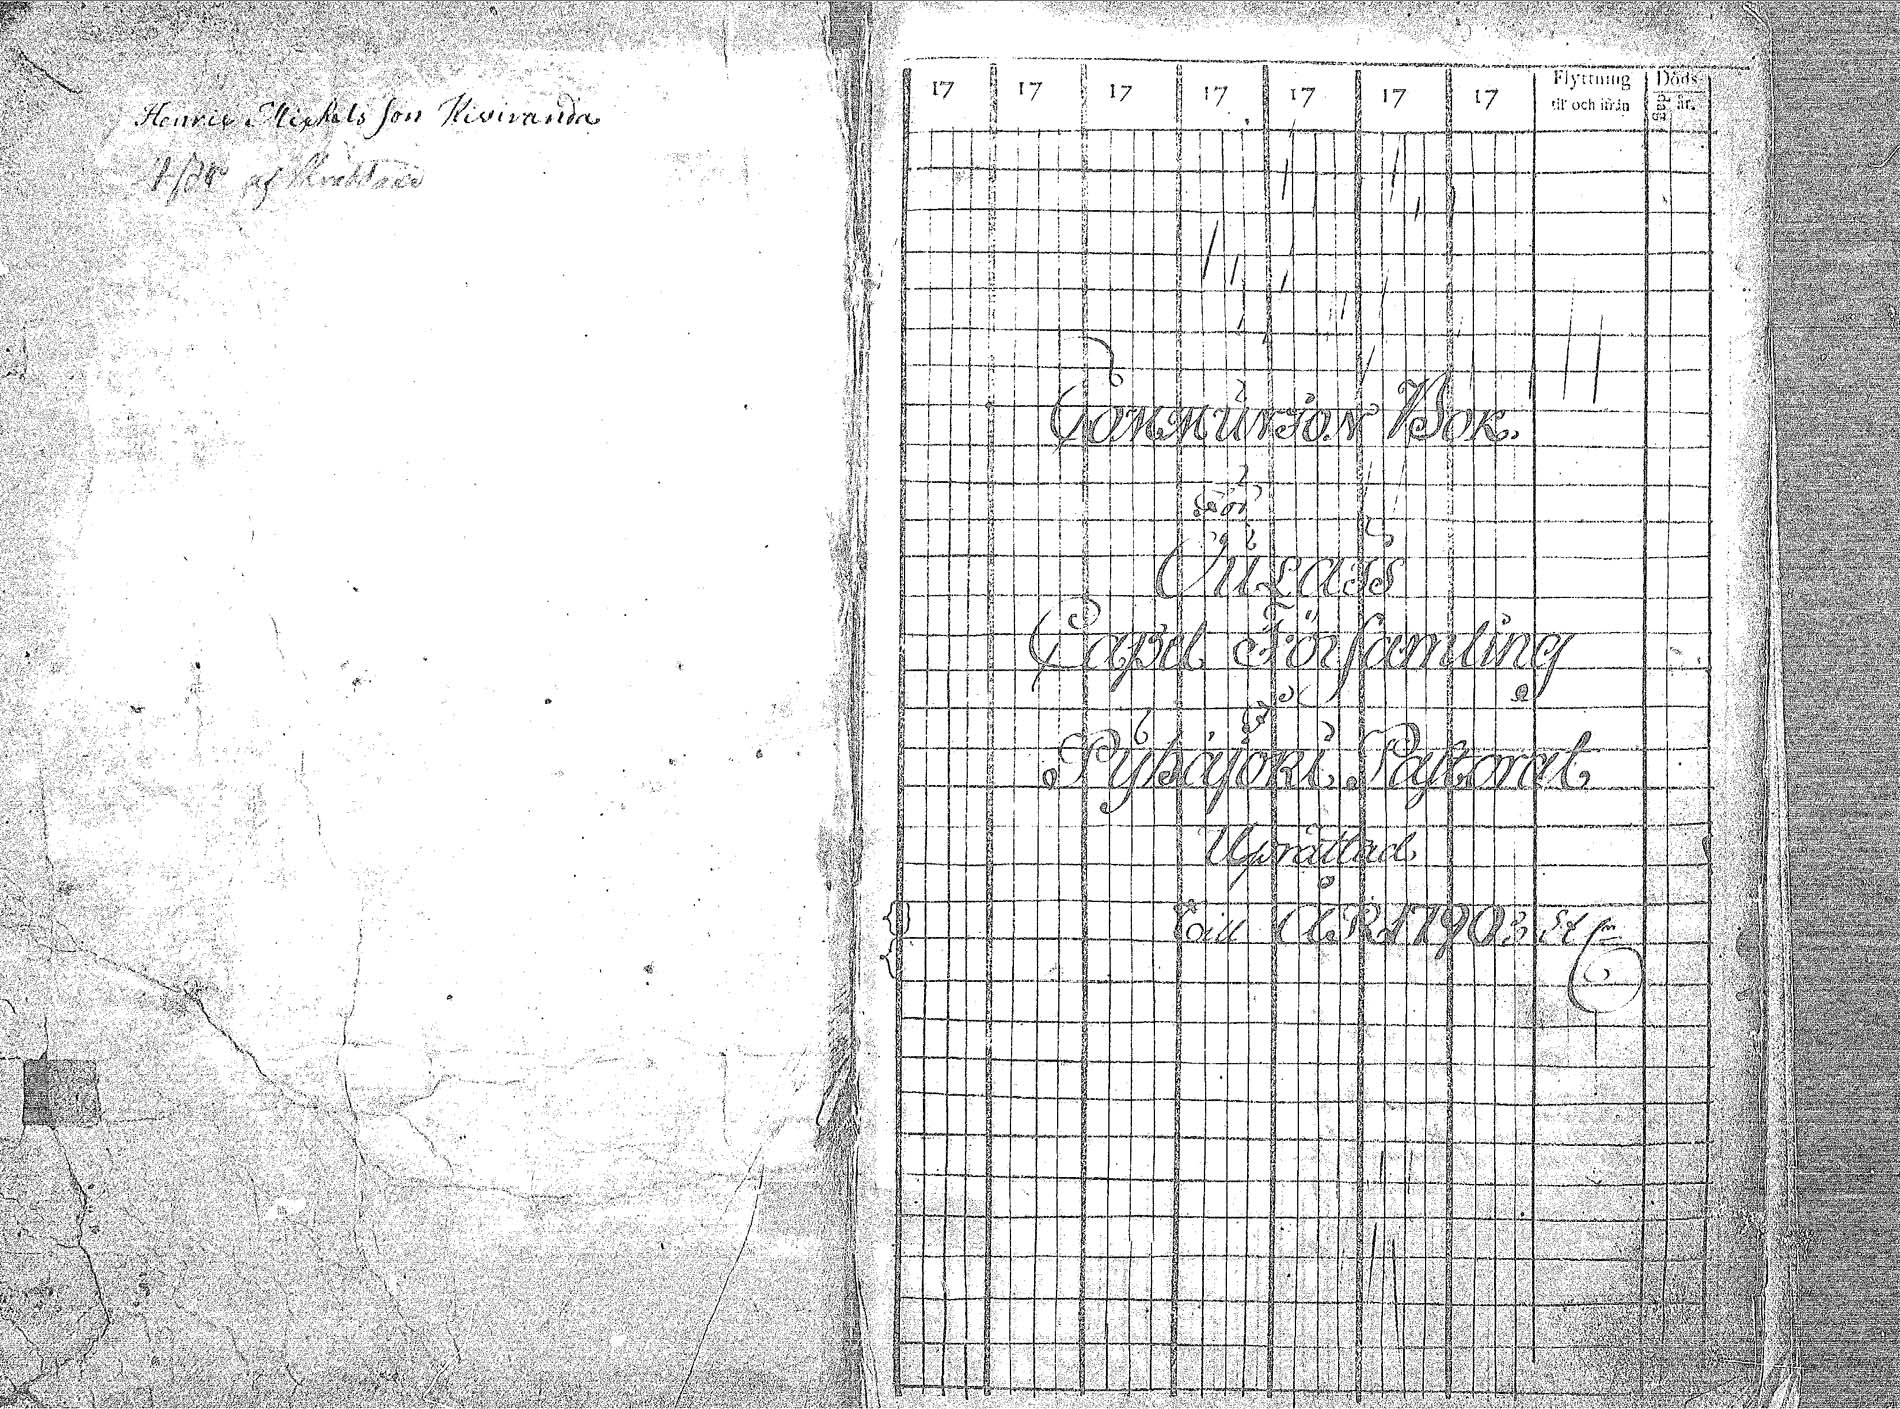 Henric Mickels son Kiviranda
af
17 17 17 17 17 17 17 Flyttning Döds-
til och ifrån dag år.
Communion Bok.
För
Oulais
Capel Församling
af
Pyhäjoki Pastorat
Uprättad
till ÅR 1790: